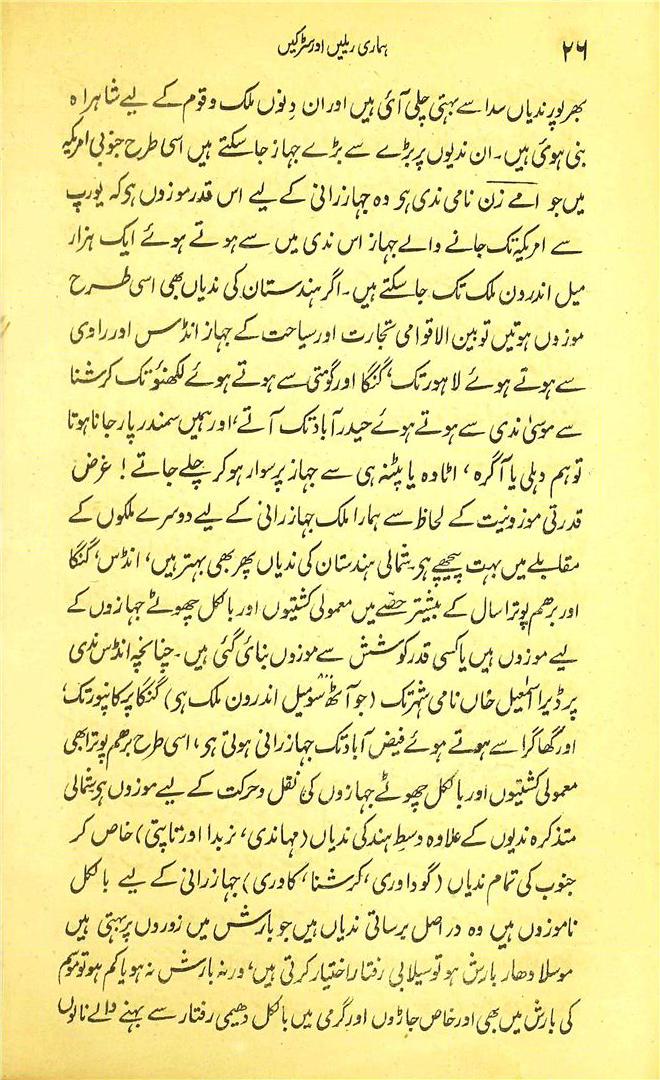 ۲۶
ہماری ریلیں اور سڑکیں
بھرپور ندیاں سدا سے بہتی چلی آئی ہیں اور ان دنوں ملک وقوم کے لیے شاہراہ
بنی ہوئی ہیں۔ ان ندیوں پر بڑے سے بڑے جہاز جا سکتے ہیں اسی طرح جنوبی امریکہ
میں جو امے زن نامی ندی ہو وہ جہاز رانی کے لیے اس قدر موزوں ہو کہ یورپ
سے امریکہ تک جانے والے جہاز اس ندی میں سے ہوتے ہوئے ایک ہزار
میل اندرون ملک تک جا سکتے ہیں۔ اگر ہندستان کی ندیاں بھی اسی طرح
موزوں ہوتیں تو بین الاقوامی تجارت اور سیاحت کے جہاز انڈس اور راوی
سے ہوتے ہوئے لاہور تک، گنگا اور گومتی سے ہوتے ہوئے لکھنؤ تک کرشنا
سے موسیٰ ندی سے ہوتے ہوئے حیدرآباد تک آتے، اور ہمیں سمندر پار جانا ہوتا
تو ہم دہلی یا آگرہ، اٹاوہ یا پٹنہ ہی سے جہاز پر سوار ہو کر چلے جاتے! غرض
قدرتی موزونیت کے لحاظ سے ہمارا ملک جہاز رانی کے لیے دوسرے ملکوں کے
مقابلے میں بہت پیچھے ہو۔ شمالی ہندستان کی ندیاں پھر بھی بہتر ہیں، انڈس، گنگا
اور برھم پوترا سال کے بیشتر حصّے میں معمولی کشتیوں اور بالکل چھوٹے جہازوں کے
لیے موزوں ہیں یا کسی قدر کوشش سے موزوں بنائی گئی ہیں۔ چنانچہ انڈس ندی
پر ڈیرا اسمٰعیل خاں نامی شہر تک (جو آٹھ سو میل اندرون ملک ہو) گنگا پر کانپور تک،
اور گھاگرا سے ہوتے ہوئے فیض آباد تک جہاز رانی ہوتی ہو، اسی طرح برھم پوترا بھی
معمولی کشتیوں اور بالکل چھوٹے جہازوں کی نقل وحرکت کے لیے موزوں ہو۔ شمالی
متذکرہ ندیوں کے علاوہ وسطِ ہند کی ندیاں (مہاندی، نربدا اور تاپتی) خاص کر
جنوب کی تمام ندیاں (گوداوری، کرشنا، کاوری) جہاز رانی کے لیے بالکل
ناموزوں ہیں وہ دراصل برساتی ندیاں ہیں جو بارش میں زوروں پر بہتی ہیں
موسلا دھار بارش ہو تو سیلابی رفتار اختیار کرتی ہیں، ورنہ بارش نہ ہو یا کم ہو تو موسم
کی بارش میں بھی اور خاص جاڑوں اور گرمی میں بالکل دھیمی رفتار سے بہنے والے نالوں